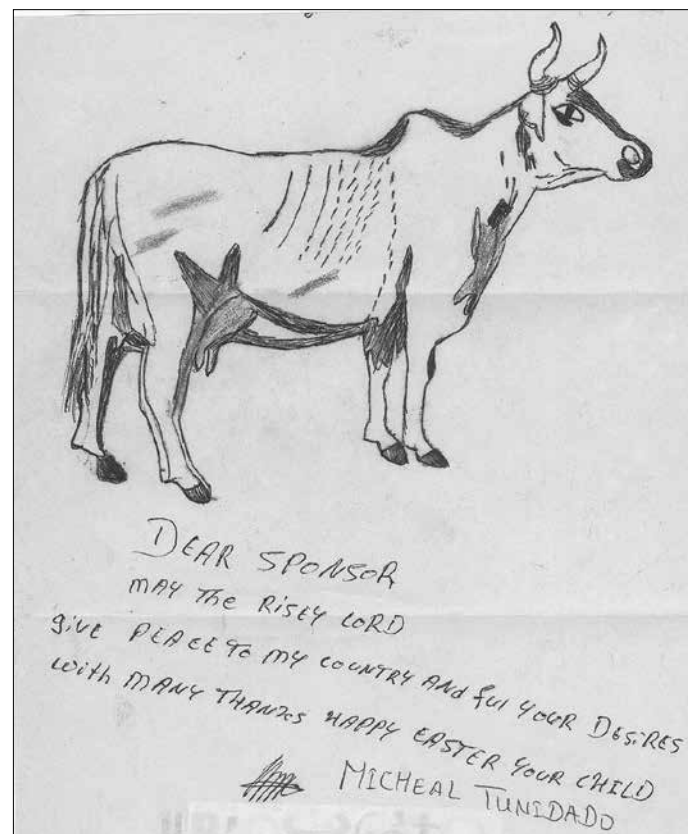 DEAR SPONSOR
MAY THE RISEY LORD
GIVE PEACE TO MY COUNTRY ANd ful YOUR DESiRES
With MANY THANKS HAPPY EASTER YOUR CHILD
MICHEAL TUNIDADO